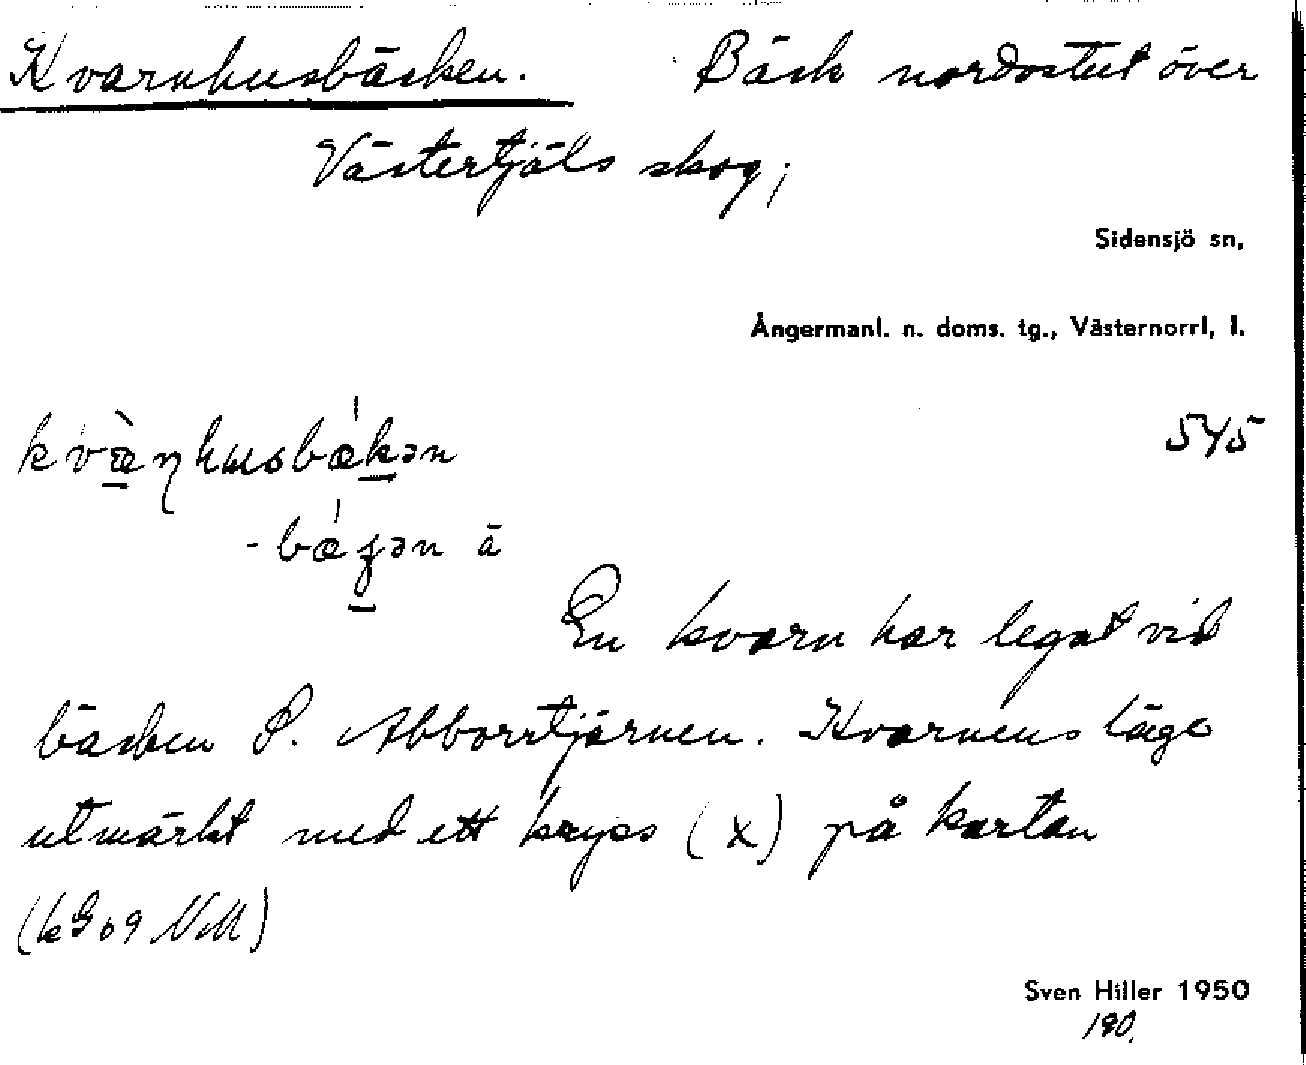 Kvarnhusbäcken. Bäck nordostut över
Västertjäls skog;
Sidensjö sn,
Ångermanl. n. doms. tg., Västernorrl, l.
545
kvæ̀ŋhusbækən
-bæʒən ä
En kvarn har legat vid
bäcken S. Abborrtjärnen. Kvarnens läge
utmärkt med ett kryss (x) på kartan
(kG09 NM)
Sven Hiller 1950
190.